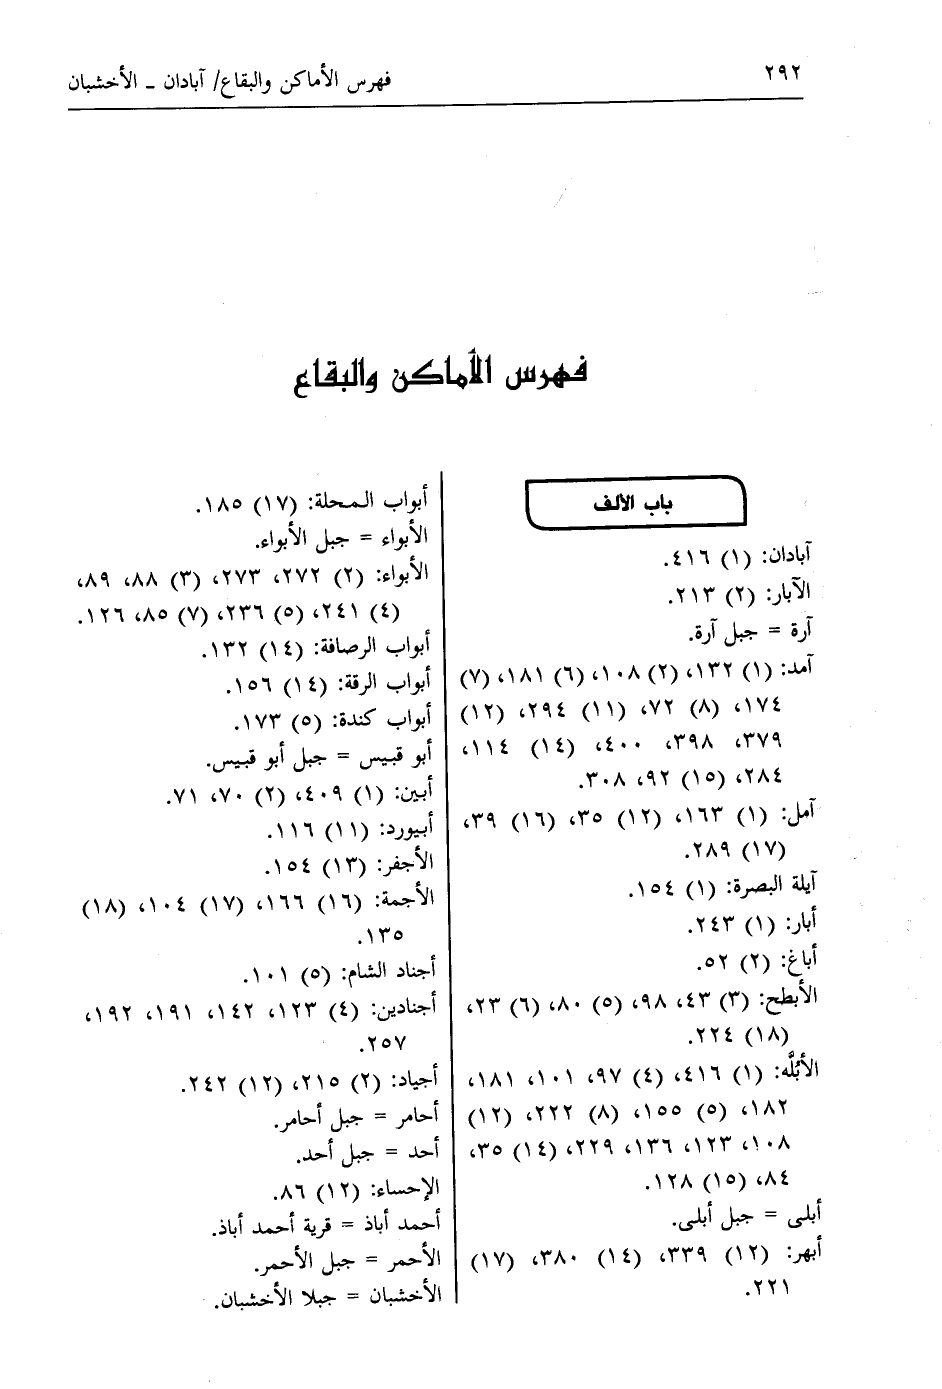 ٢٩٢
فهرس الأماكن والبقاع/ آبادان ـ الأخشبان
فهرس الأماكن والبقاع
باب الألف
آبادان: (١) ٤١٦.
الآبار: (٢) ٢١٣.
آرة = جبل آرة.
آمد: (١) ١٣٢، (٢) ١٠٨، (٦) ١٨١، (٧)
١٧٤، (٨) ٧٢، (١١) ٢٩٤، (١٢)
٣٧٩، ٣٩٨، ٤٠٠، (١٤) ١١٤،
٢٨٤، (١٥) ٩٢، ٣٠٨.
آمل: (١) ١٦٣، (١٢) ٣٥، (١٦) ٣٩،
(١٧) ٢٨٩.
آيلة البصرة: (١) ١٥٤.
أبار: (١) ٢٤٣.
أباغ: (٢) ٥٢.
الأبطح: (٣) ٤٣، ٩٨، (٥) ٨٠، (٦) ٢٣،
(١٨) ٢٢٤.
الأبُلَّه: (١) ٤١٦، (٤) ٩٧، ١٠١، ١٨١،
١٨٢، (٥) ١٥٥، (٨) ٢٢٢، (١٢)
١٠٨، ١٢٣، ١٣٦، ٢٢٩، (١٤) ٣٥،
٨٤، (١٥) ١٢٨.
أبلى = جبل أبلى.
أبهر: (١٢) ٣٣٩، (١٤) ٣٨٠، (١٧)
٢٢١.
أبواب المحلة: (١٧) ١٨٥.
الأبواء = جبل الأبواء.
الأبواء: (٢) ٢٧٢، ٢٧٣، (٣) ٨٨، ٨٩،
(٤) ٢٤١، (٥) ٢٣٦، (٧) ٨٥، ١٢٦.
أبواب الرصافة: (١٤) ١٣٢.
أبواب الرقة: (١٤) ١٥٦.
أبواب كندة: (٥) ١٧٣.
أبو قبيس = جبل أبو قبيس.
أبين: (١) ٤٠٩، (٢) ٧٠، ٧١.
أبيورد: (١١) ١١٦.
الأجفر: (١٣) ١٥٤.
الأجمة: (١٦) ١٦٦، (١٧) ١٠٤، (١٨)
١٣٥.
أجناد الشام: (٥) ١٠١.
أجنادين: (٤) ١٢٣، ١٤٢، ١٩١، ١٩٢،
٢٥٧.
أجياد: (٢) ٢١٥، (١٢) ٢٤٢.
أحامر = جبل أحامر.
أحد = جبل أحد.
الإحساء: (١٢) ٨٦.
أحمد أباذ = قرية أحمد أباذ.
الأحمر = جبل الأحمر.
الأخشبان = جبلا الأخشبان.